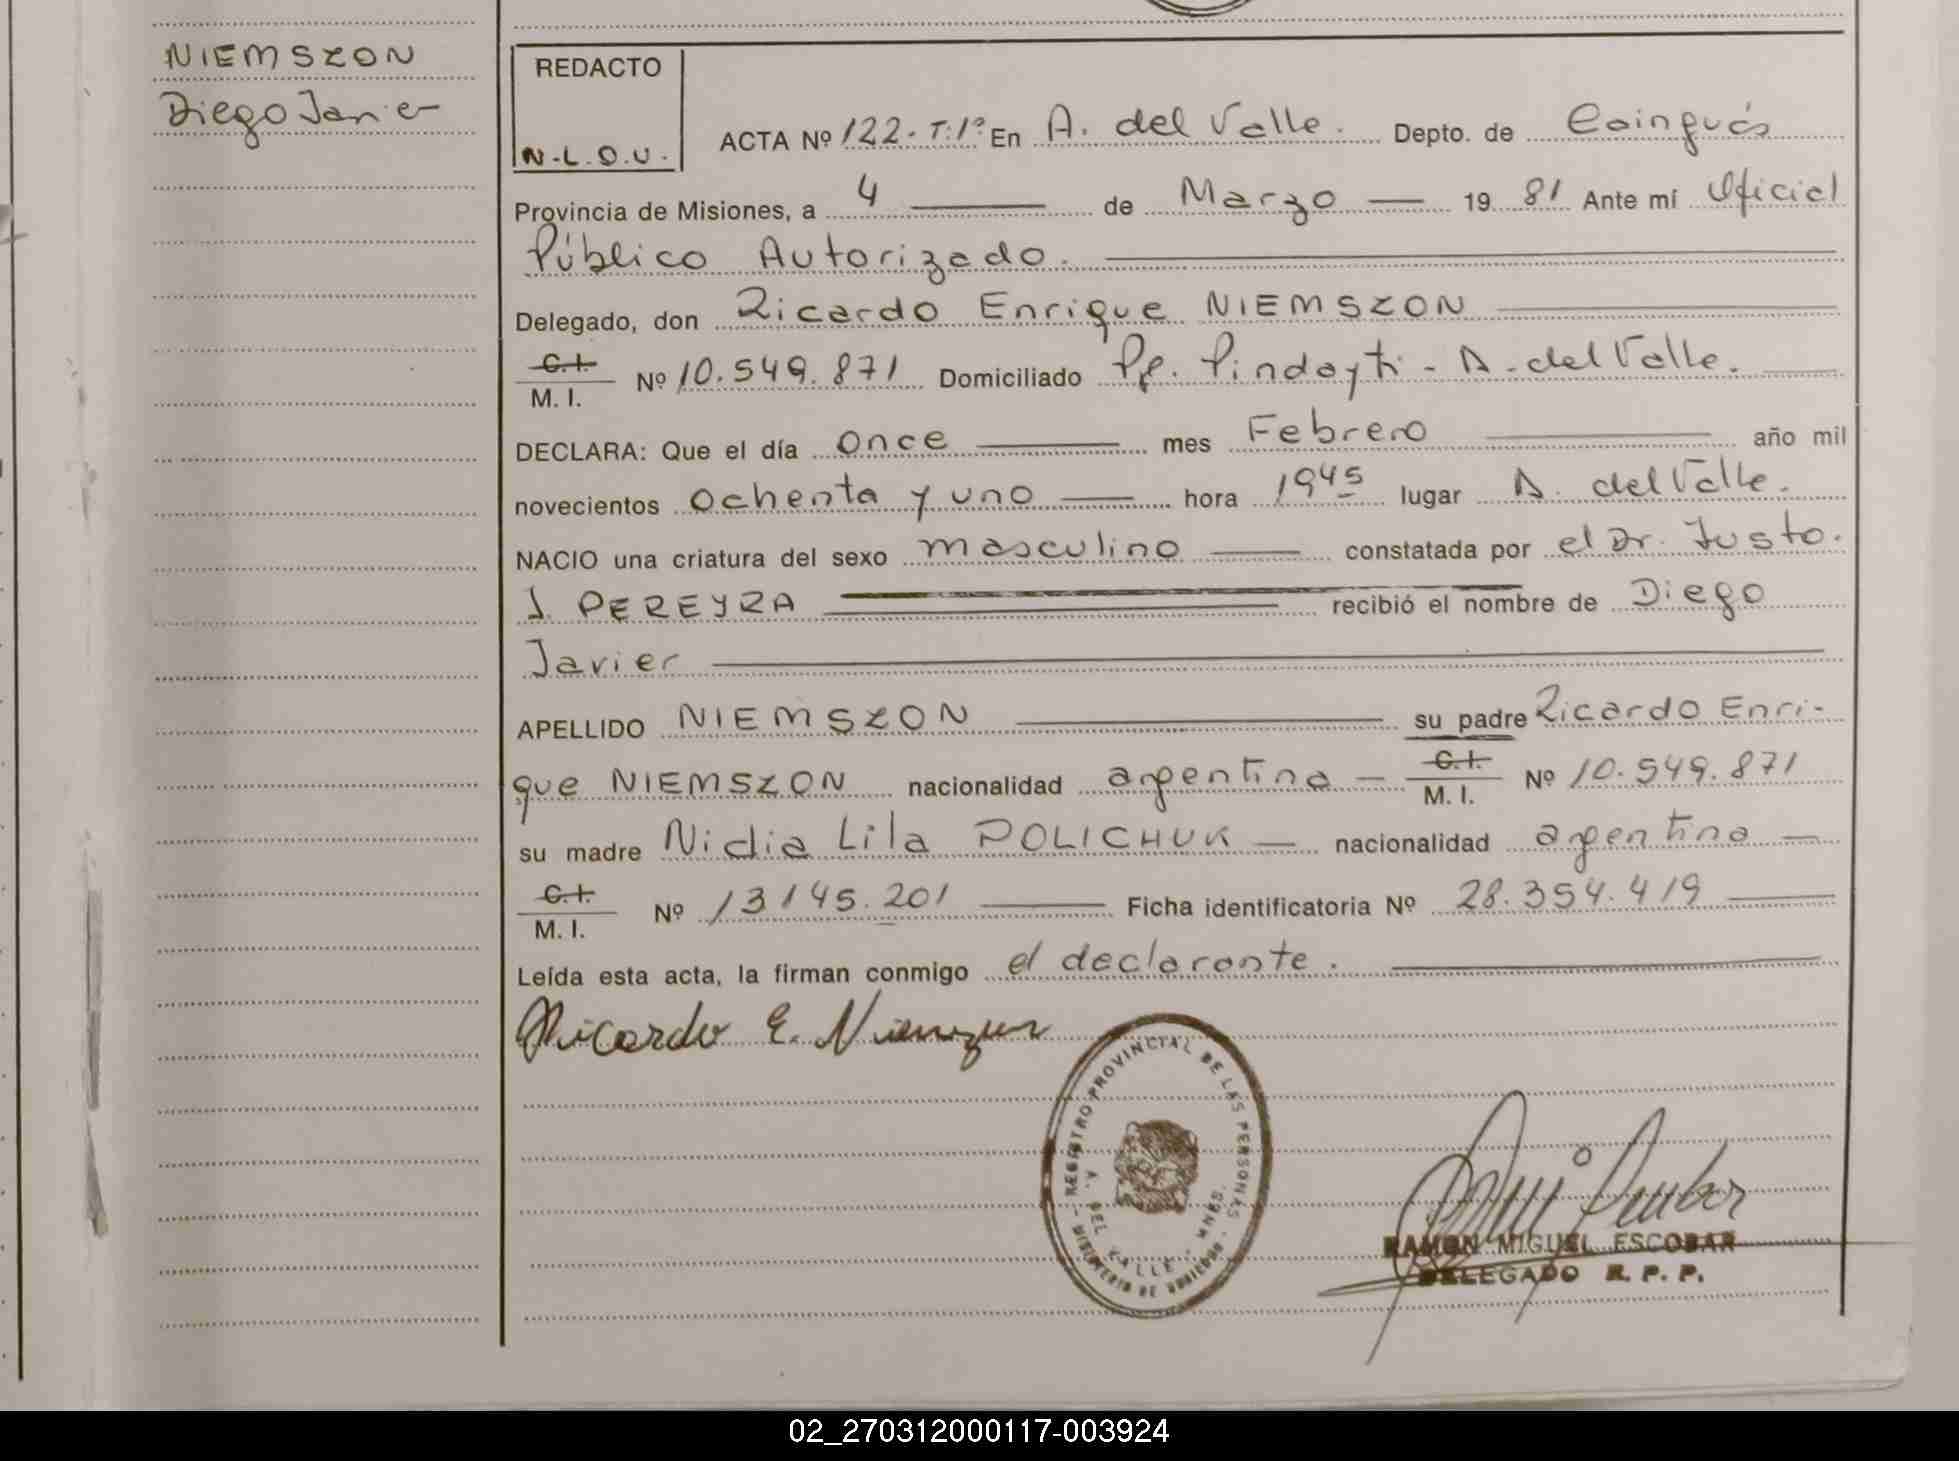 NIEMSZON
Diego Javier
REDACTO
N.L.O.U.
ACTA Nº 122. T:1º En A. del Valle. Depto. de Cainguás
Provincia de Misiones, a 4 de Marzo 19 81 Ante mí Oficial
Público Autorizado.
Delegado, don Ricardo Enrique NIEMSZON
C.I.
M. I. Nº 10.549.871 Domiciliado Pje. Pindayti - A. del Valle.
DECLARA: Que el día once mes Febrero año mil
novecientos ochenta y uno hora 1945 lugar A. del Valle.
NACIO una criatura del sexo masculino constatada por el Dr. Justo.
J. PEREYRA recibió el nombre de Diego
Javier
APELLIDO NIEMSZON su padre Ricardo Enri-
que NIEMSZON nacionalidad argentina C.I. M. I. Nº 10.549.871
su madre Nidia Lila POLICHUK nacionalidad argentina
C.I.
M. I. Nº 13145.201 Ficha identificatoria Nº 28.354.419
Leída esta acta, la firman conmigo el declarante.
Ricardo E. Niemszon
REGISTRO PROVINCIAL DE LAS PERSONAS
A. DEL VALLE - MNES.
MINISTERIO DE GOBIERNO
RAMON MIGUEL ESCOBAR
DELEGADO R. P. P.
02_270312000117-003924